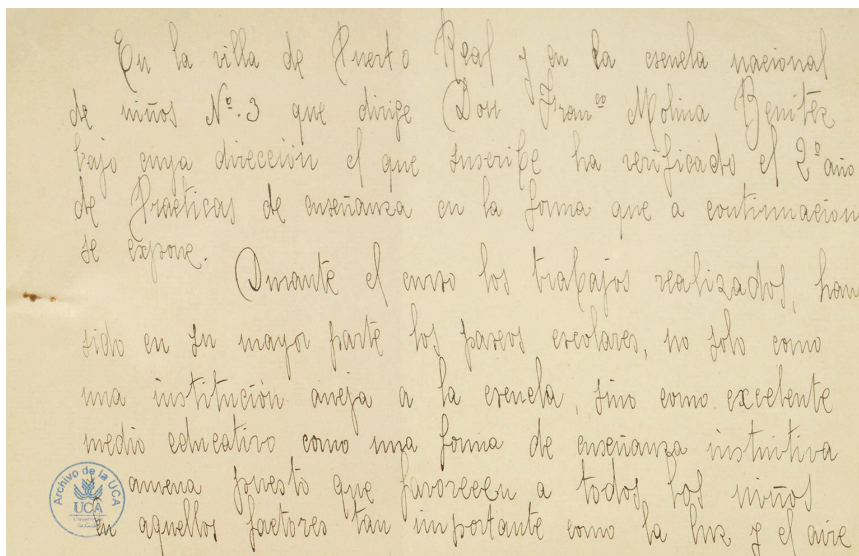 En la villa de Puerto Real y en la escuela nacional
de niños Nº. 3 que dirige Don Franco Molina Benítez
bajo cuya dirección el que suscribe ha verificado el 2º año
de Practicas de enseñanza en la forma que a continuacion
se expone.
Durante el curso los trabajos realizados, han
sido en su mayor parte los paseos escolares, no solo como
una institución aneja a la escuela, sino como excelente
medio educativo como una forma de enseñanza instuitiva
amena puesto que favorecen a todos los niños
en aquellos factores tan importante como la luz y el aire
Archivo de la UCA
UCA